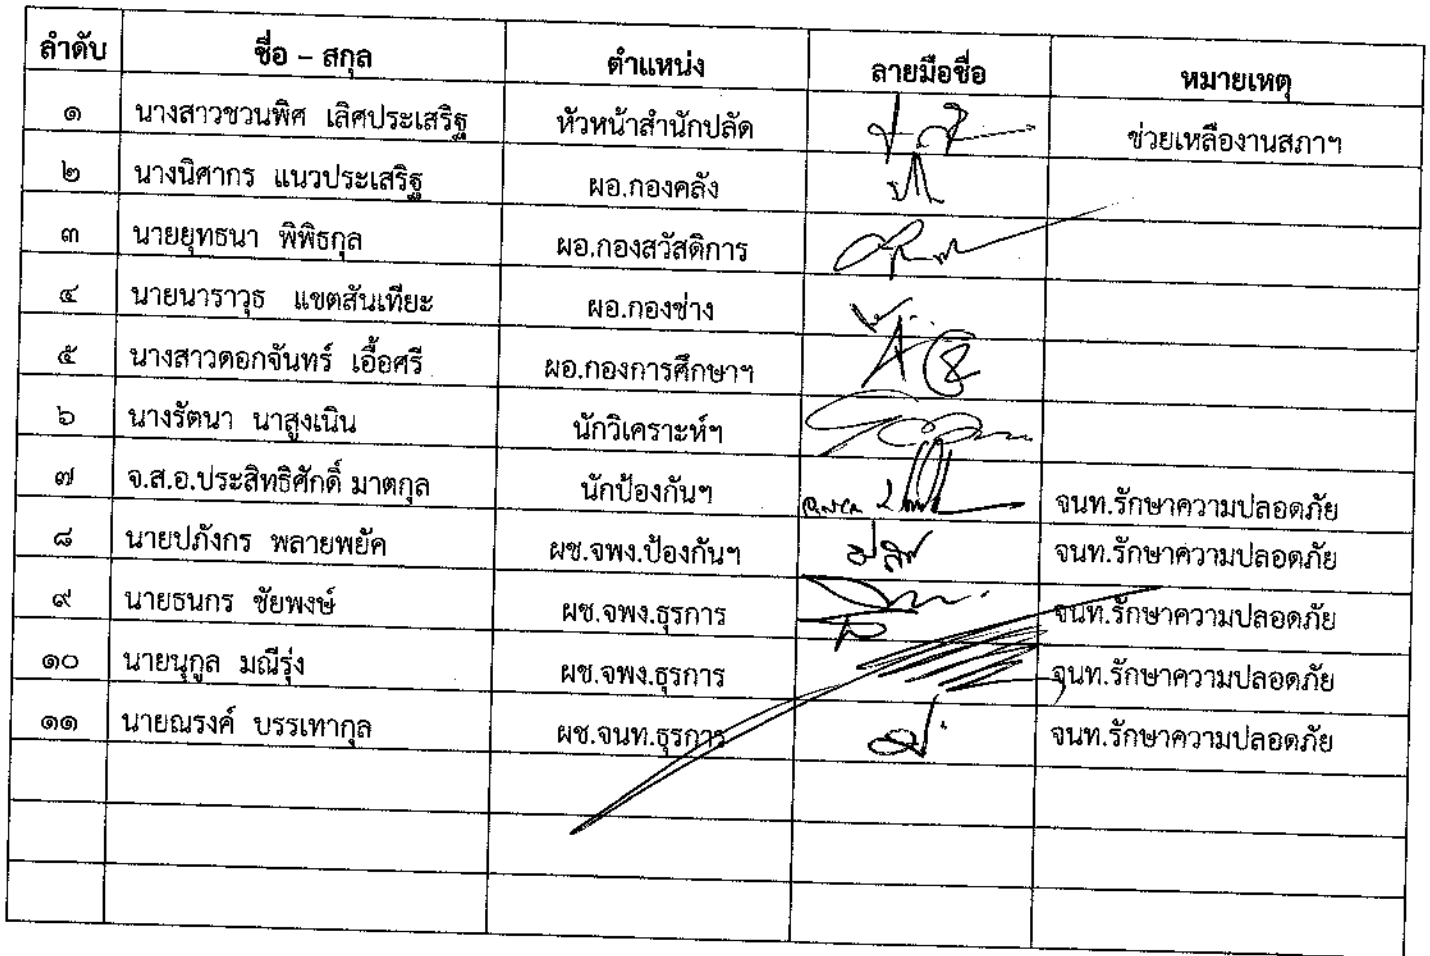 ลำดับ ชื่อ – สกุล ตำแหน่ง ลายมือชื่อ หมายเหตุ
๑ นางสาวชวนพิศ เลิศประเสริฐ หัวหน้าสำนักปลัด ช่วยเหลืองานสภาฯ
๒ นางนิศากร แนวประเสริฐ ผอ.กองคลัง
๓ นายยุทธนา พิพิธกุล ผอ.กองสวัสดิการ
๔ นายนาราวุธ แขตสันเทียะ ผอ.กองช่าง
๕ นางสาวดอกจันทร์ เอื้อศรี ผอ.กองการศึกษาฯ
๖ นางรัตนา นาสูงเนิน นักวิเคราะห์ฯ
๗ จ.ส.อ.ประสิทธิศักดิ์ มาตกุล นักป้องกันฯ จนท.รักษาความปลอดภัย
๘ นายปภังกร พลายพยัค ผช.จพง.ป้องกันฯ จนท.รักษาความปลอดภัย
๙ นายธนกร ชัยพงษ์ ผช.จพง.ธุรการ จนท.รักษาความปลอดภัย
๑๐ นายนุกูล มณีรุ่ง ผช.จพง.ธุรการ จนท.รักษาความปลอดภัย
๑๑ นายณรงค์ บรรเทากุล ผช.จนท.ธุรการ จนท.รักษาความปลอดภัย